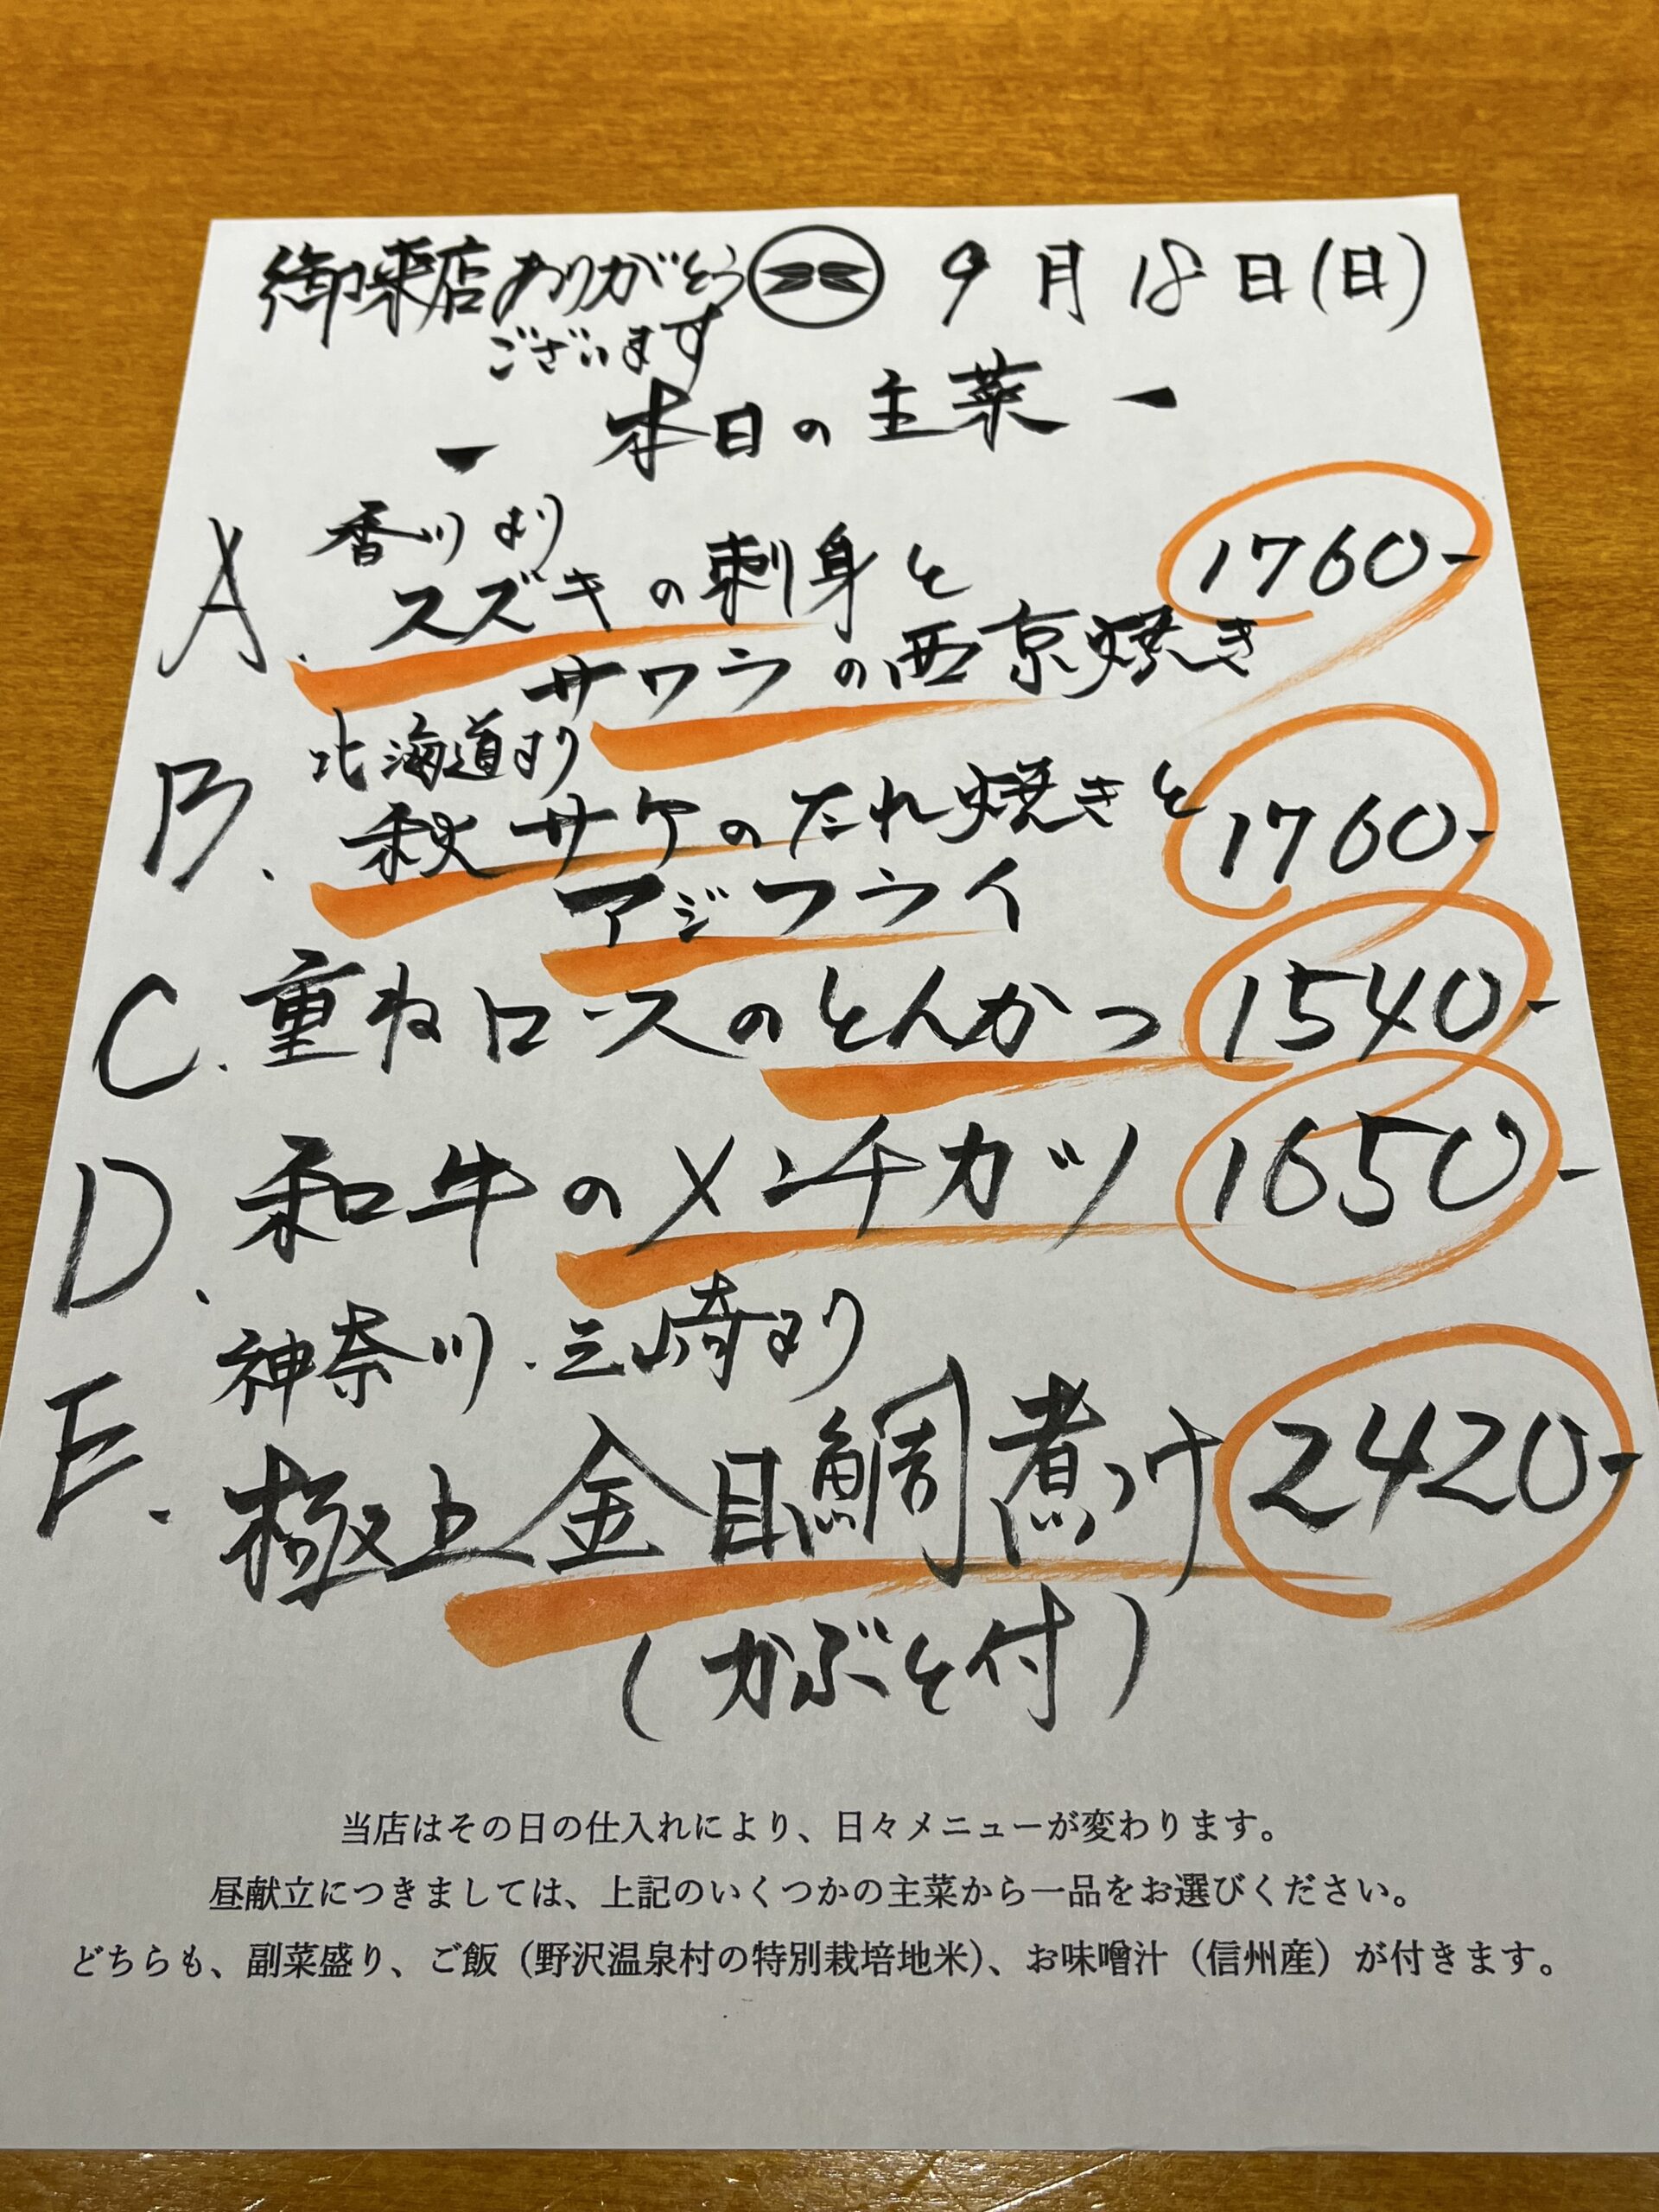 御来店ありがとう 9月18日(日)
ございます
- 本日の主菜 -
香川より
A. スズキの刺身と 1760-
サワラの西京焼き
北海道より
B. 秋サケのたれ焼きと 1760-
アジフライ
C. 重ねロースのとんかつ 1540-
D. 和牛のメンチカツ 1650-
神奈川・三崎より
E. 極上金目鯛煮つけ 2420-
(かぶと付)
当店はその日の仕入れにより、日々メニューが変わります。
昼献立につきましては、上記のいくつかの主菜から一品をお選びください。
どちらも、副菜盛り、ご飯（野沢温泉村の特別栽培地米）、お味噌汁（信州産）が付きます。